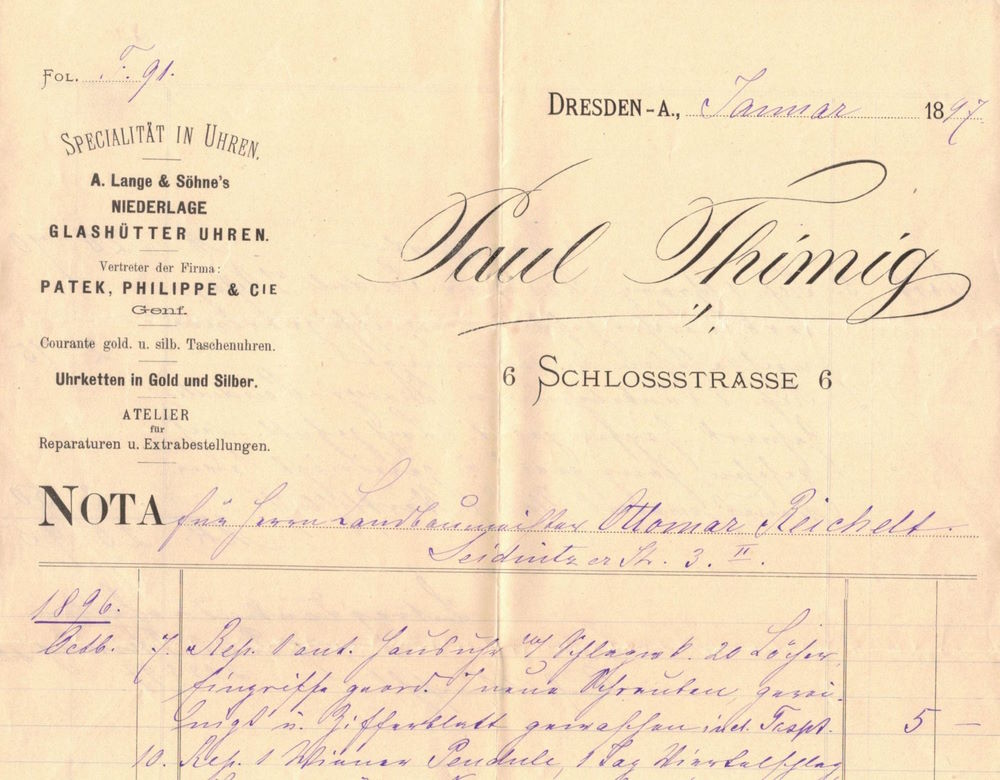 FOL. F. 91.
DRESDEN-A., Januar 1897
SPECIALITÄT IN UHREN.
A. Lange & Söhne's
NIEDERLAGE
GLASHÜTTER UHREN.
Vertreter der Firma:
PATEK, PHILIPPE & CIE
Genf.
Courante gold. u. silb. Taschenuhren.
Uhrketten in Gold und Silber.
ATELIER
für
Reparaturen u. Extrabestellungen.
Paul Thimig
6 SCHLOSSSTRASSE 6
NOTA für Herrn Landbaumeister Ottomar Reichelt.
Seidnitzer Str. 3. II.
1896.
Octb. 7. Rep. 1 ant. Hausuhr m/ Schlagwk. 20 Löcher,
Eingriffe geord. 7 neue Schrauben, gerei-
nigt u. Zifferblatt gewaschen incl. Tspt. 5 —
10. Rep. 1 Wiener Pendule, 1 Tag Viertelschlag